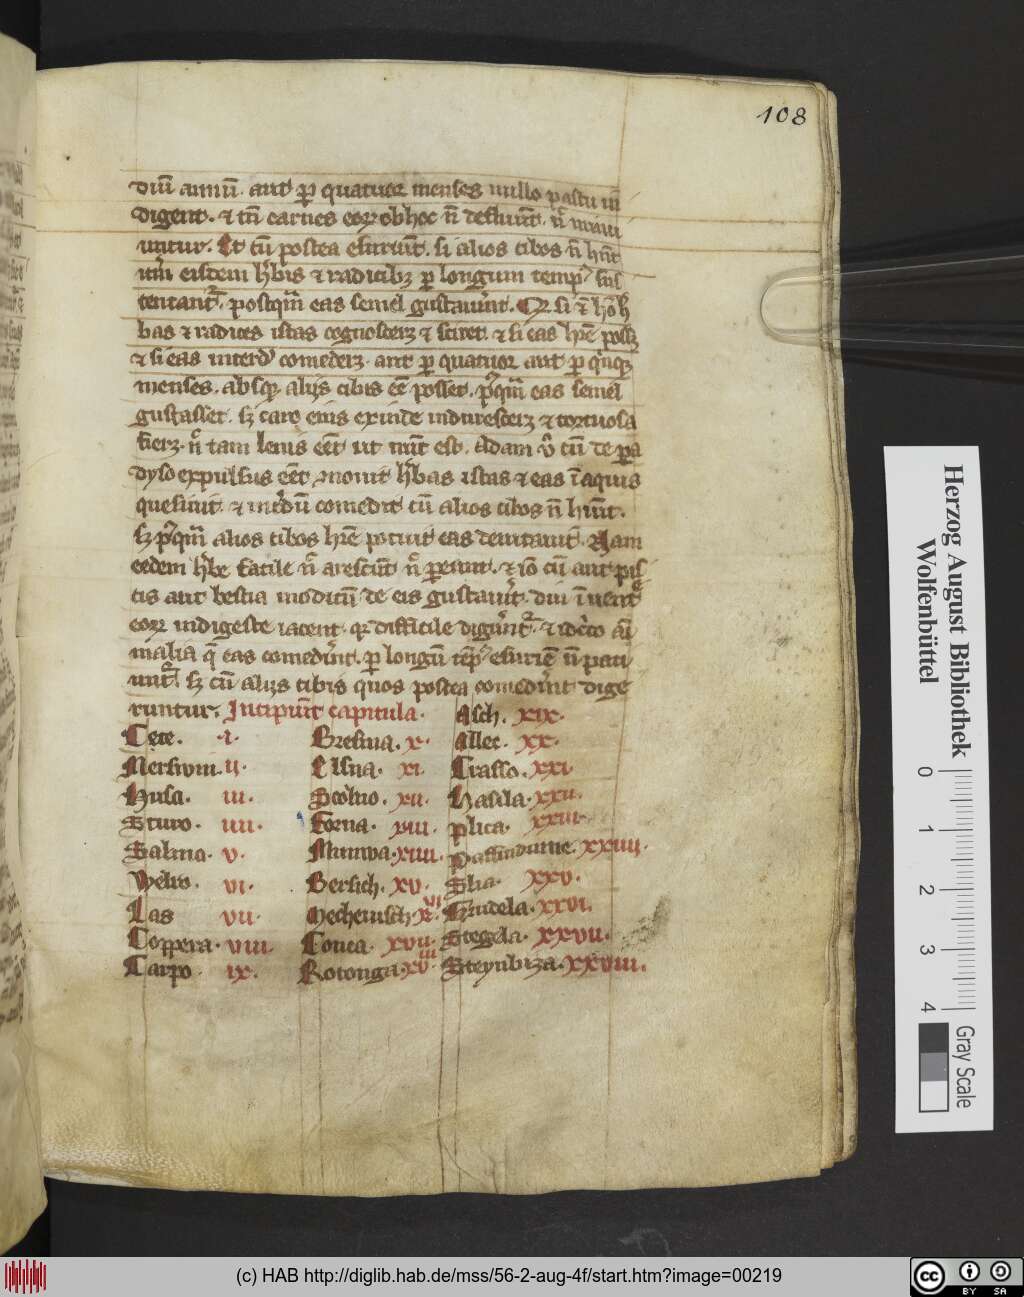 108
diū annū. aut ꝑ quatuor menses nullo pastu in
digent. ⁊ tn̄ carnes eoꝝ ob hoc n̄ defluūt. n̄ minu
untur. Et cū postea esuriūt. si alios cibos n̄ hn̄t
itm̄ eisdem h̓bis ⁊ radicibꝫ ꝑ longum temp⁹ sus
tentant᷑. postqm̄ eas semel gustauer̄nt. Qr si ⁊ hō h̓
bas ⁊ radices istas cognosceꝫ ⁊ sciret. ⁊ si eas hr̄e possꝫ
⁊ si eas interdū comedeꝫ. aut ꝑ quatuor aut ꝑ qͥnqꝫ
menses. absqꝫ alijs cibis eē posset. pꝰqm̄ eas semel
gustasset. sꝫ caro eius exinde induresceꝫ ⁊ tortuosa
fieꝫ. n̄ tam lenis eēt ut nūc est. Adam ū cū de para
dyso expulsus eēt nouit h̓bas istas ⁊ eas ī aquis
quesiuit. ⁊ int̓dū comedit cū alios cibos n̄ hūit.
sꝫ pꝰqm̄ alios cibos hr̄e potuit eas deuitauit. Nam
eedem h̓be facile n̄ arescūt n̄ ꝑeunt. ⁊ iō cū aut pis
cis aut bestia modicū de eis gustau̓it. diu ī uentͤ
eoꝝ indigeste iacent. qr difficile diger̄nt᷑. ⁊ idcͦo aī
malia q̄ eas comeder̄nt. ꝑ longū tēp⁹ esuriē n̄ pati
unt᷑. sꝫ cū alijs cibis quos postea comeder̄nt dige
runtur. Incipiūt capitula. Asch. xix.
Cete. .i. Bresina. x. Allec. xx.
Merswin. ij. Elsua. xi. Crasso. xxi.
Husa. iii. Scolmo. xii. Hasela. xxii.
Sturo. iiii. Forna. xiii. Plica. xxiii.
Salmo. v. Munwa. xiiii. Passindume. xxiiii.
Welra. vi. Bersich. xv. Slia. xxv.
Las vii. Mechenisch. xvi. Grudela. xxvi.
Coppera. viii. Conca. xvii. Stegela. xxvii.
Carpo. ix. Rotonga. xviii. Steynbiza. xxviii.
Herzog August Bibliothek
Wolfenbüttel
0 1 2 3 4
Gray Scale
(c) HAB http://diglib.hab.de/mss/56-2-aug-4f/start.htm?image=00219
cc BY SA